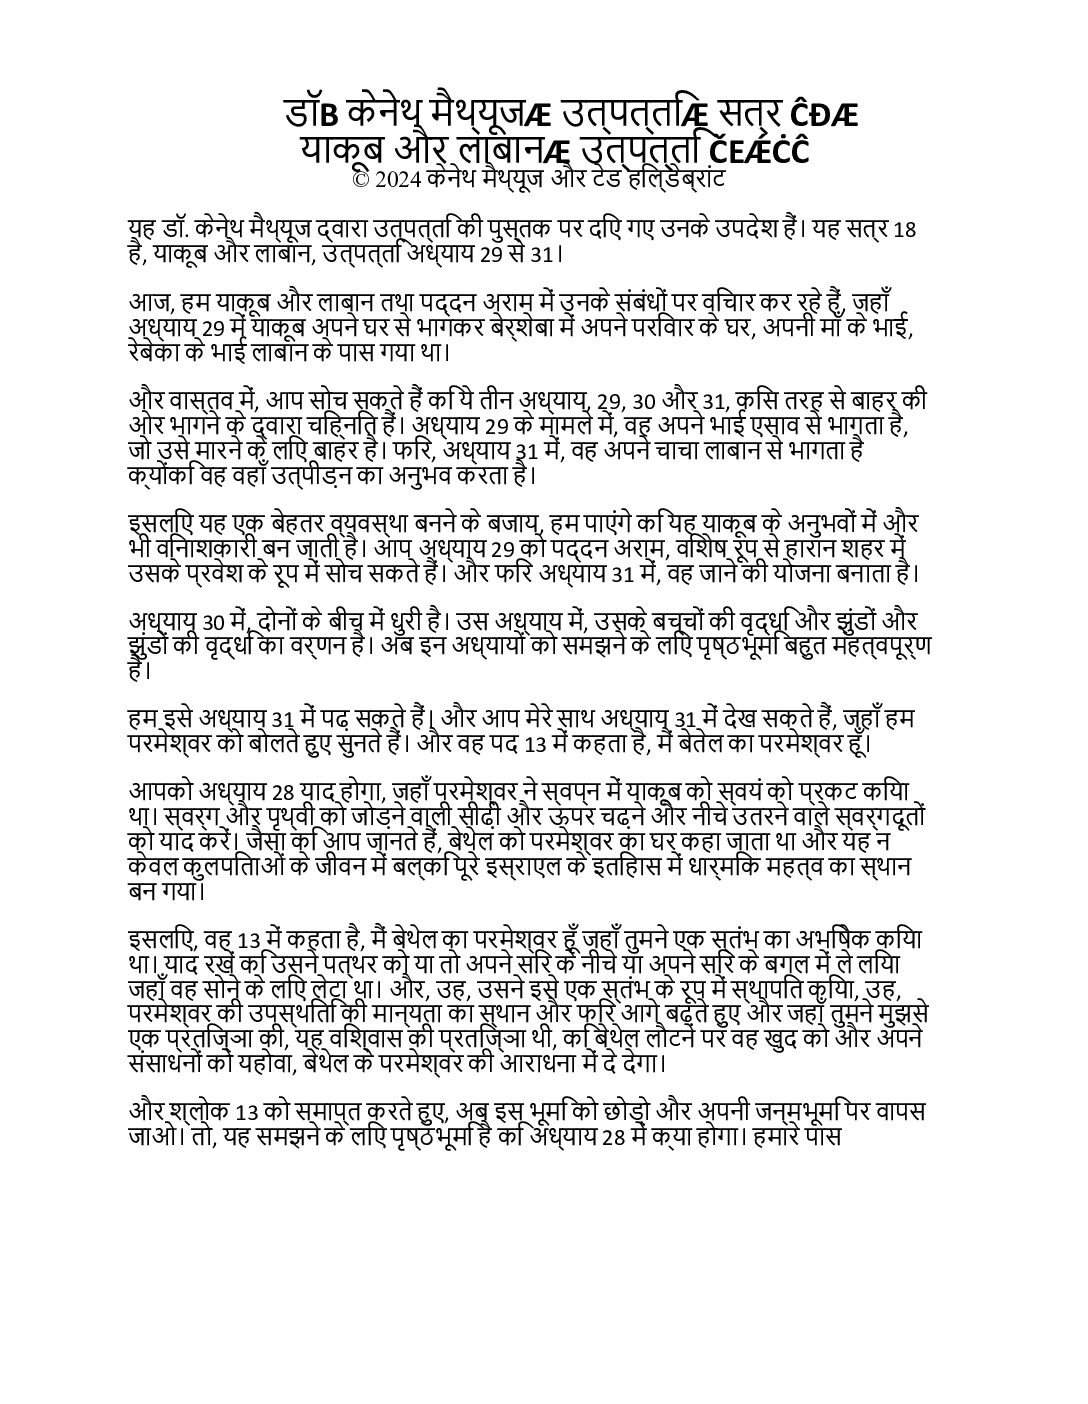 डॉB केनेथ मैथ्यूजÆ उत्पत्तिÆ सत्र ĈÐÆ
याकूब और लाबानÆ उत्पत्ति ČEǼĊĈ
© 2024 केनेथ मैथ्यूज और टेड हिल्डेब्रांट
यह डॉ. केनेथ मैथ्यूज द्वारा उत्पत्ति की पुस्तक पर दिए गए उनके उपदेश हैं। यह सत्र 18
है, याकूब और लाबान, उत्पत्ति अध्याय 29 से 31।
आज, हम याकूब और लाबान तथा पद्दन अराम में उनके संबंधों पर विचार कर रहे हैं, जहाँ
अध्याय 29 में याकूब अपने घर से भागकर बेर्शेबा में अपने परिवार के घर, अपनी माँ के भाई,
रेबेका के भाई लाबान के पास गया था।
और वास्तव में, आप सोच सकते हैं कि ये तीन अध्याय, 29, 30 और 31, किस तरह से बाहर की
ओर भागने के द्वारा चिह्नित हैं। अध्याय 29 के मामले में, वह अपने भाई एसाव से भागता है,
जो उसे मारने के लिए बाहर है। फिर, अध्याय 31 में, वह अपने चाचा लाबान से भागता है
क्योंकि वह वहाँ उत्पीड़न का अनुभव करता है।
इसलिए यह एक बेहतर व्यवस्था बनने के बजाय, हम पाएंगे कि यह याकूब के अनुभवों में और
भी विनाशकारी बन जाती है। आप अध्याय 29 को पद्दन अराम, विशेष रूप से हारान शहर में
उसके प्रवेश के रूप में सोच सकते हैं। और फिर अध्याय 31 में, वह जाने की योजना बनाता है।
अध्याय 30 में, दोनों के बीच में धुरी है। उस अध्याय में, उसके बच्चों की वृद्धि और झुंडों और
झुंडों की वृद्धि का वर्णन है। अब इन अध्यायों को समझने के लिए पृष्ठभूमि बहुत महत्वपूर्ण
है।
हम इसे अध्याय 31 में पढ़ सकते हैं। और आप मेरे साथ अध्याय 31 में देख सकते हैं, जहाँ हम
परमेश्वर को बोलते हुए सुनते हैं। और वह पद 13 में कहता है, मैं बेतेल का परमेश्वर हूँ।
आपको अध्याय 28 याद होगा, जहाँ परमेश्वर ने स्वप्न में याकूब को स्वयं को प्रकट किया
था। स्वर्ग और पृथ्वी को जोड़ने वाली सीढ़ी और ऊपर चढ़ने और नीचे उतरने वाले स्वर्गदूतों
को याद करें। जैसा कि आप जानते हैं, बेथेल को परमेश्वर का घर कहा जाता था और यह न
केवल कुलपिताओं के जीवन में बल्कि पूरे इस्राएल के इतिहास में धार्मिक महत्व का स्थान
बन गया।
इसलिए, वह 13 में कहता है, मैं बेथेल का परमेश्वर हूँ जहाँ तुमने एक स्तंभ का अभिषेक किया
था। याद रखें कि उसने पत्थर को या तो अपने सिर के नीचे या अपने सिर के बगल में ले लिया
जहाँ वह सोने के लिए लेटा था। और, उह, उसने इसे एक स्तंभ के रूप में स्थापित किया, उह,
परमेश्वर की उपस्थिति की मान्यता का स्थान और फिर आगे बढ़ते हुए और जहाँ तुमने मुझसे
एक प्रतिज्ञा की, यह विश्वास की प्रतिज्ञा थी, कि बेथेल लौटने पर वह खुद को और अपने
संसाधनों को यहोवा, बेथेल के परमेश्वर की आराधना में दे देगा।
और श्लोक 13 को समाप्त करते हुए, अब इस भूमि को छोड़ो और अपनी जन्मभूमि पर वापस
जाओ। तो, यह समझने के लिए पृष्ठभूमि है कि अध्याय 28 में क्या होगा। हमारे पास